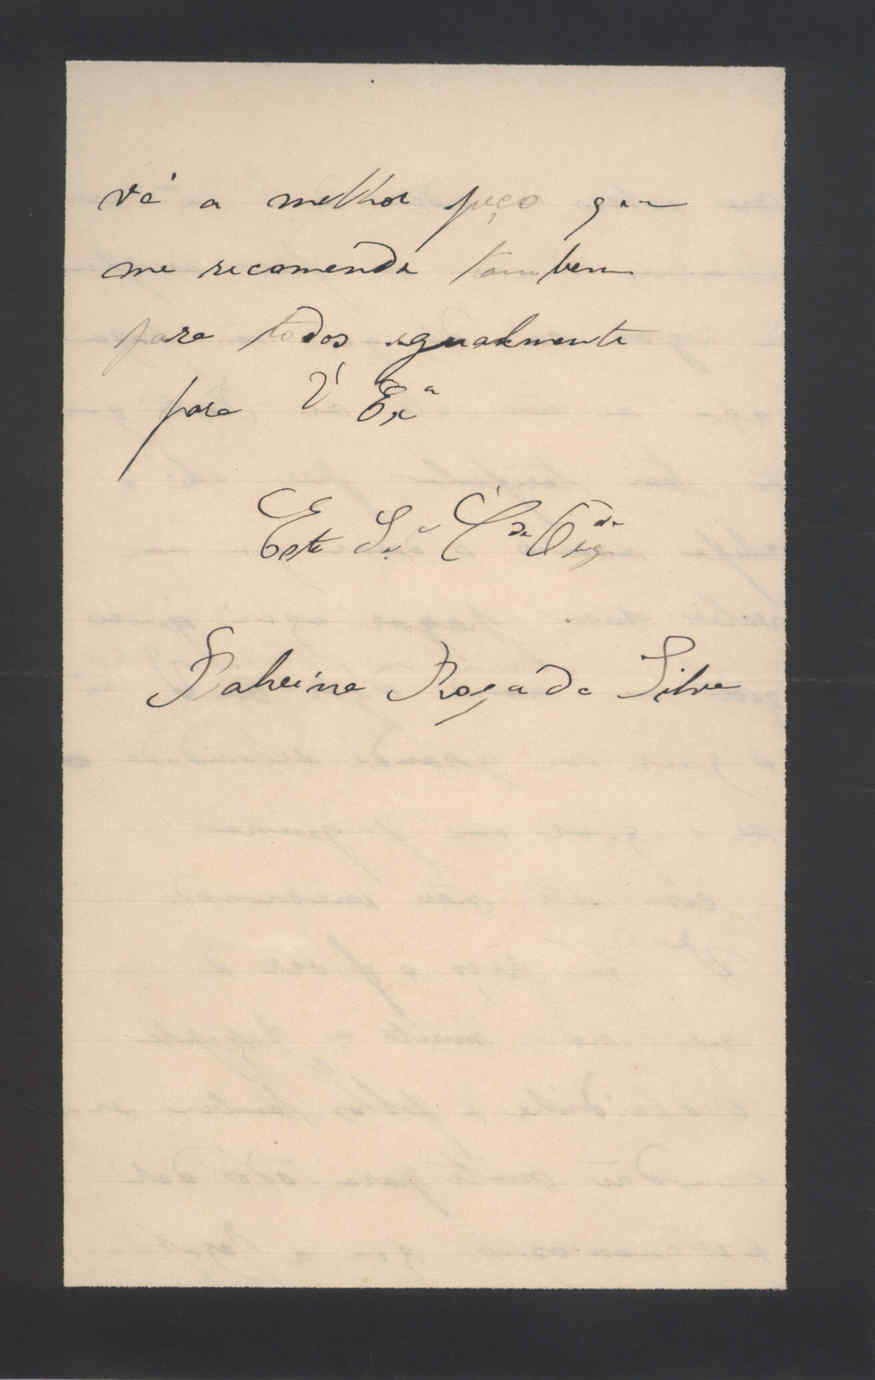 vá a melhor peço que
me recomenda tambem
para todos egualmente
para V Exª
Esta Sª Cª de
Roça da Silva